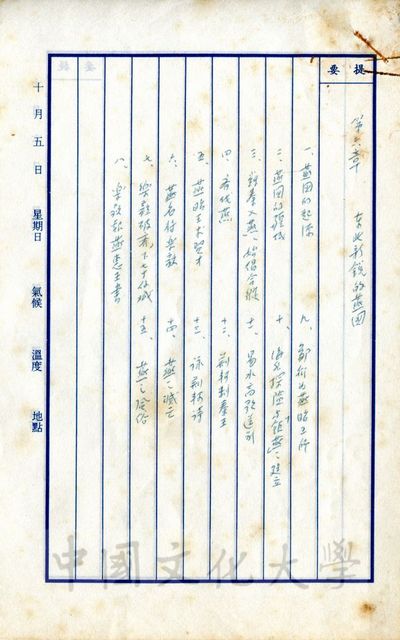 提要
第六章 東北新銳的燕國
一、燕國的起源
二、燕國的疆域
三、蘇秦入燕、始倡合縱
四、齊伐燕
五、燕昭王求賢才
六、燕名將樂毅
七、樂毅破齊下七十餘城
八、樂毅報燕惠王書
九、鄒衍與燕昭王所
十、
十一、易水高歌送別
十二、荊軻刺秦王
十三、詠荊軻詩
十四、燕之滅亡
十五、燕之風俗
十月五日 星期日 氣候 溫度 地點
中國文化大學